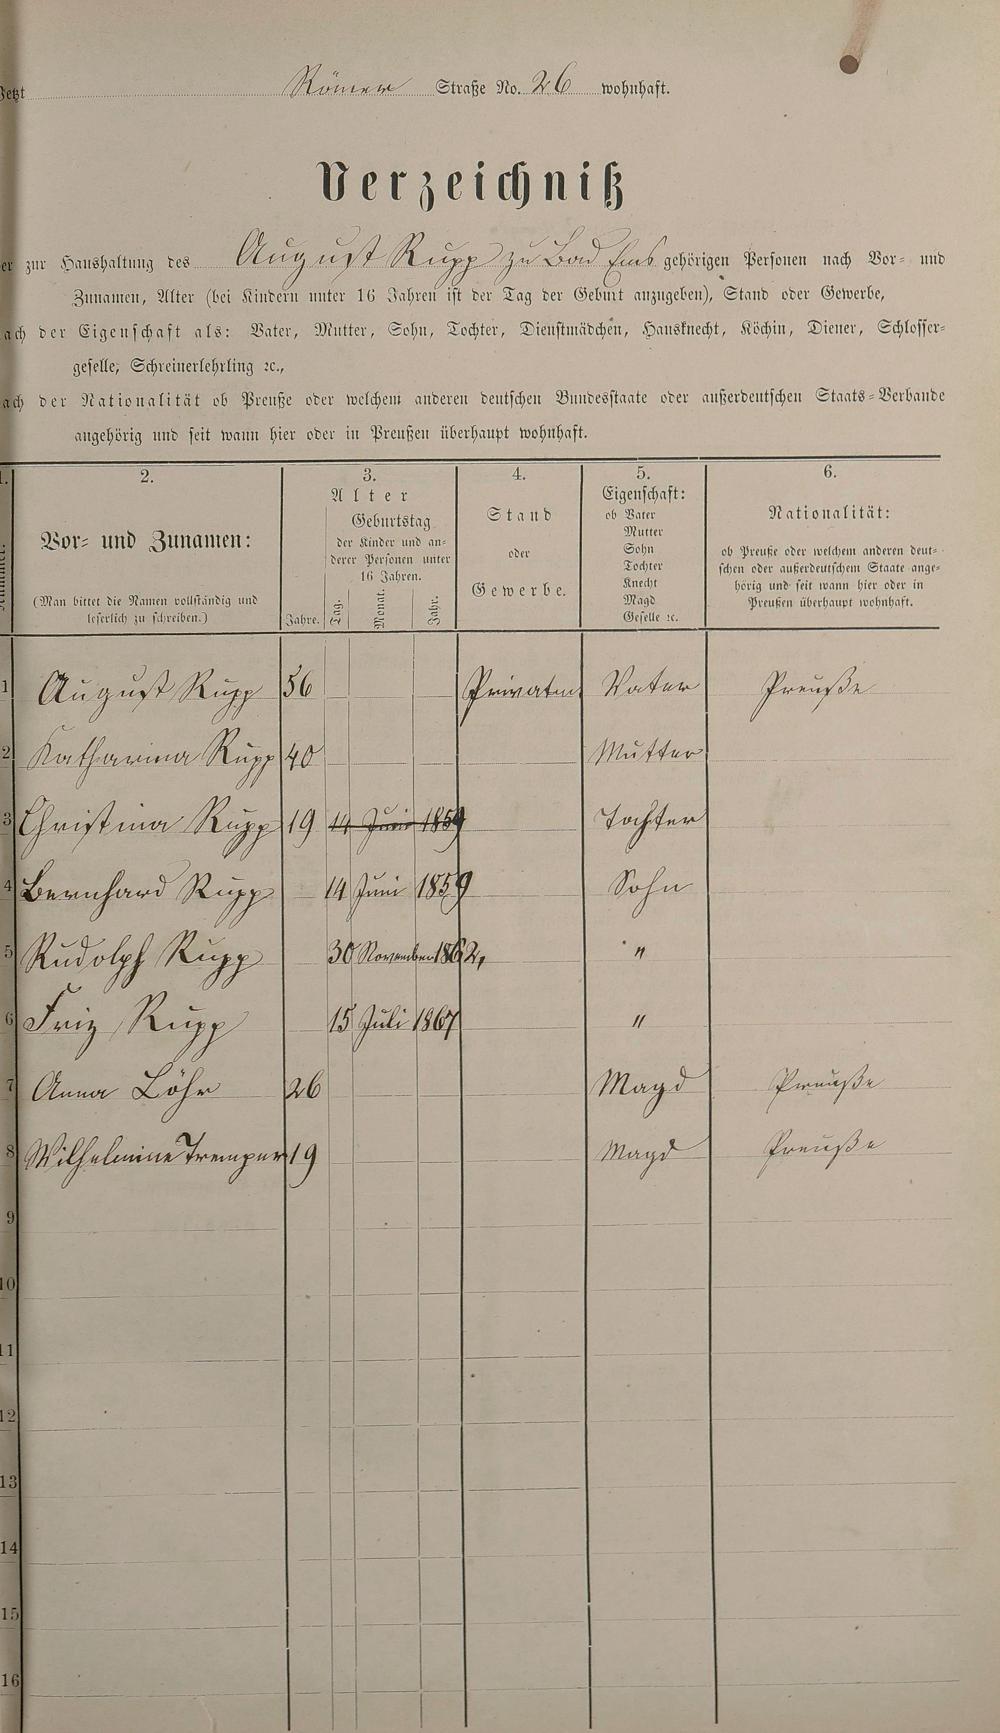 Jetzt Römer Straße No. 26 wohnhaft.
Verzeichniß
er zur Haushaltung des August Rupp zu Bad Ems gehörigen Personen nach Vor- und
Zunamen, Alter (bei Kindern unter 16 Jahren ist der Tag der Geburt anzugeben), Stand oder Gewerbe,
ach der Eigenschaft als: Vater, Mutter, Sohn, Tochter, Dienstmädchen, Hausknecht, Köchin, Diener, Schlosser-
geselle, Schreinerlehrling ꝛc.,
ach der Nationalität ob Preuße oder welchem anderen deutschen Bundesstaate oder außerdeutschen Staats-Verbande
angehörig und seit wann hier oder in Preußen überhaupt wohnhaft.
1. 2. 3. 4. 5. 6.
Nummer.
Vor- und Zunamen:
(Man bittet die Namen vollständig und
leserlich zu schreiben.)
Alter
Geburtstag
der Kinder und an-
derer Personen unter
16 Jahren.
Jahre. Tag. Monat. Jahr.
Stand
oder
Gewerbe.
Eigenschaft:
ob Vater
Mutter
Sohn
Tochter
Knecht
Magd
Geselle ꝛc.
Nationalität:
ob Preuße oder welchem anderen deut-
schen oder außerdeutschem Staate ange-
hörig und seit wann hier oder in
Preußen überhaupt wohnhaft.
1 August Rupp 56 Privatm. Vater Preuße
2 Katharina Rupp 40 Mutter
3 Christina Rupp 19 14 Juni 1859 Tochter
4 Bernhard Rupp 14 Juni 1859 Sohn
5 Rudolph Rupp 30 November 1862, "
6 Friz Rupp 15 Juli 1867 "
7 Anna Löhr 26 Magd Preuße
8 Wilhelmine Tremper 19 Magd Preuße
9
10
11
12
13
14
15
16